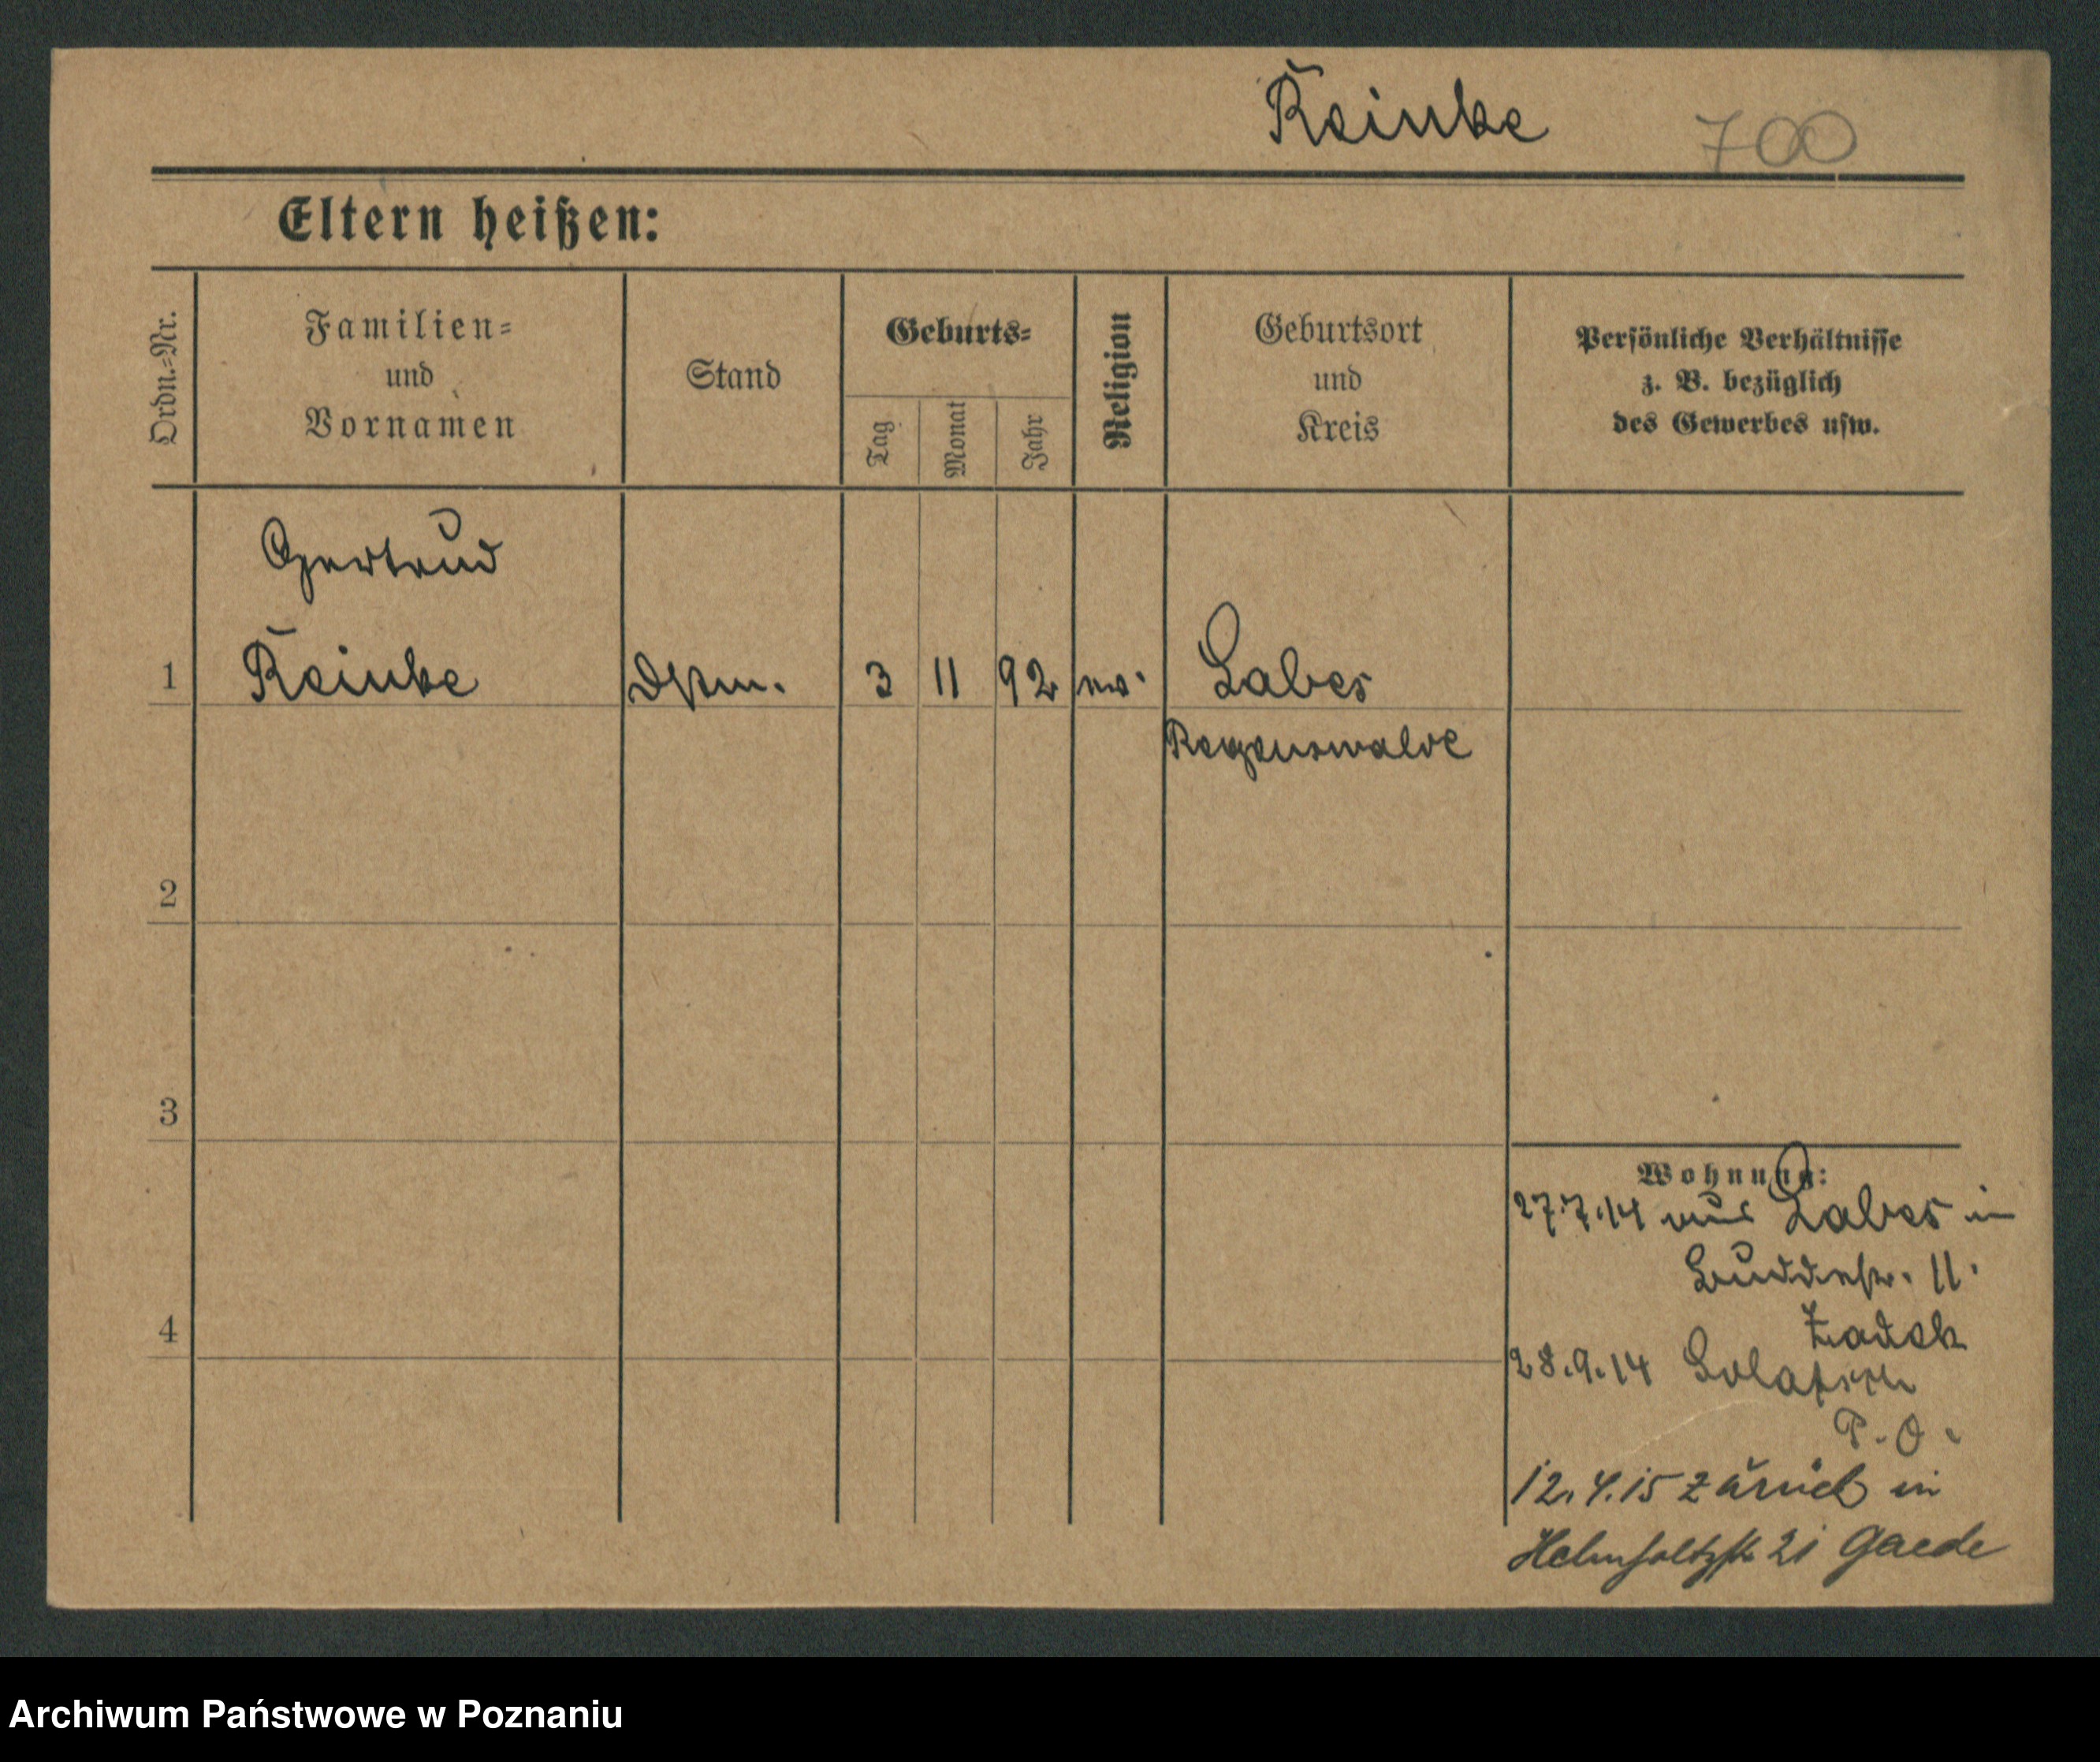 Reinke 700
Eltern heißen:
Ordn.-Nr.
Familien-
und
Vornamen
Stand
Geburts-
Tag
Monat
Jahr
Religion
Geburtsort
und
Kreis
Persönliche Verhältnisse
z. B. bezüglich
des Gewerbes usw.
Gertrud
1 Reinke 3 11 92 ev. Labes
Regenswalde
2
3
Wohnung:
27.7.14 aus Labes in
Buddestr. 11.
Zadek
4
28.9.14
P. O.
12.4.15 zurück in
Helmholtzstr 21 Gaede
Archiwum Państwowe w Poznaniu